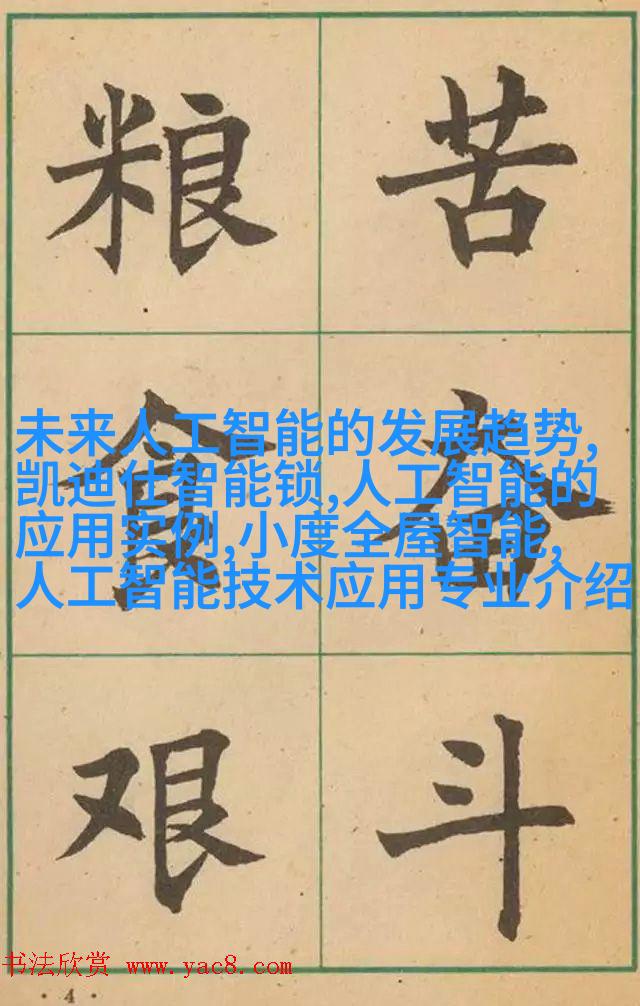 粮 苦
食 奋
艰 斗
未来人工智能的发展趋势,
凯迪仕智能锁,人工智能的
应用实例,小度全屋智能,
人工智能技术应用专业介绍
书法欣赏 www.yac8.com
· 4 ·